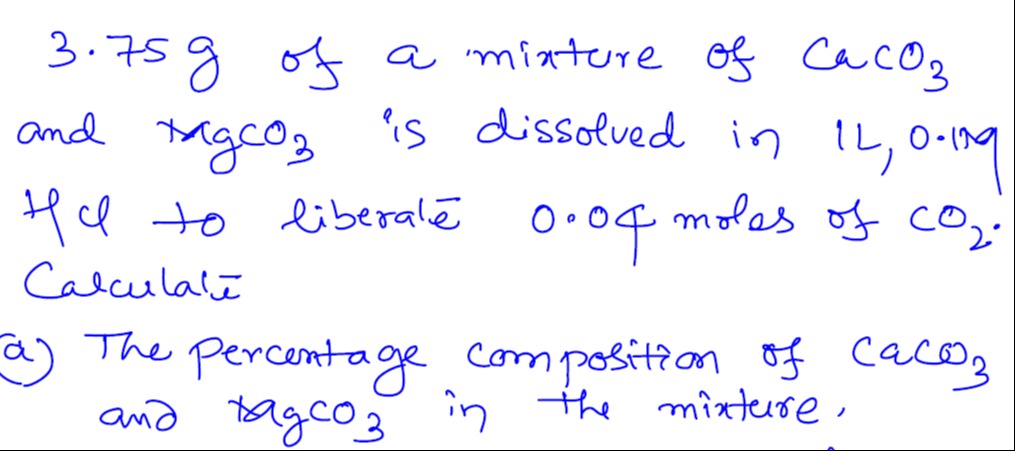 3.75 g of a mixture of CaCO3
and MgCO3 is dissolved in 1L, 0.1M
HCl to liberate 0.04 moles of CO2.
Calculate
a) The percentage composition of CaCO3
and MgCO3 in the mixture.